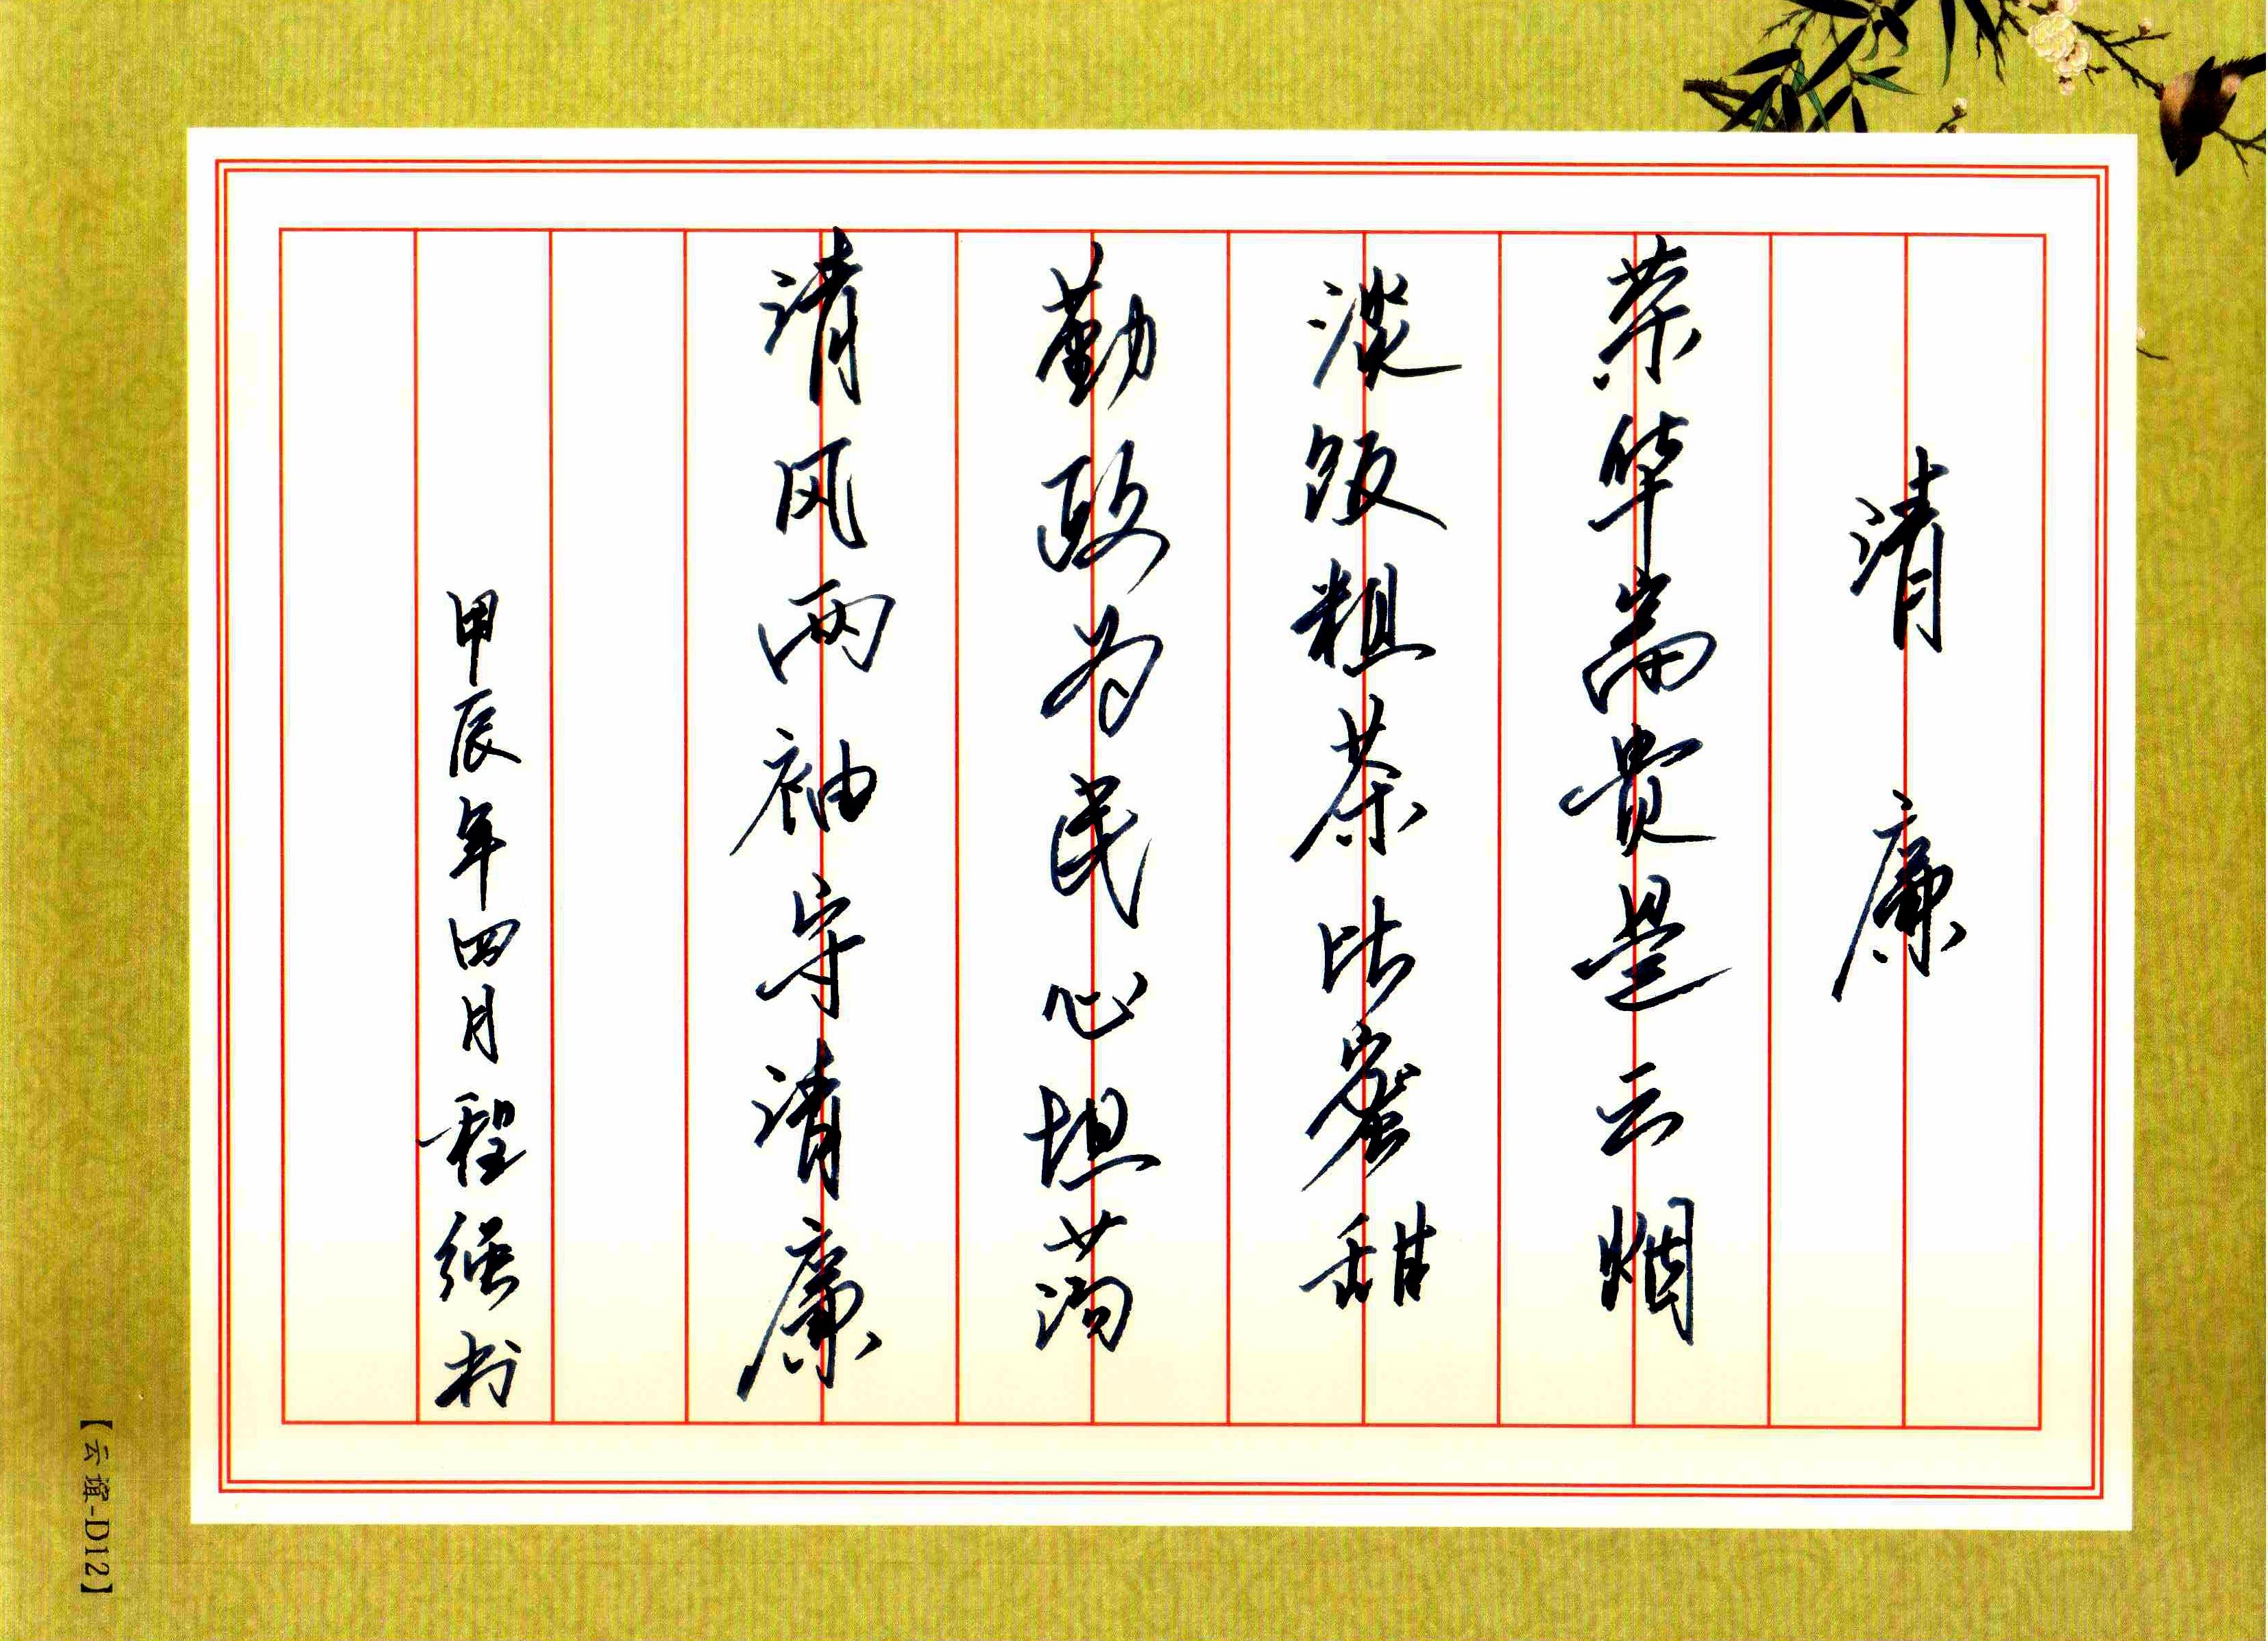 清廉
荣华富贵是云烟
淡饭粗茶比蜜甜
勤政为民心坦荡
清风两袖守清廉
甲辰年四月程强书
【云谊-D12】